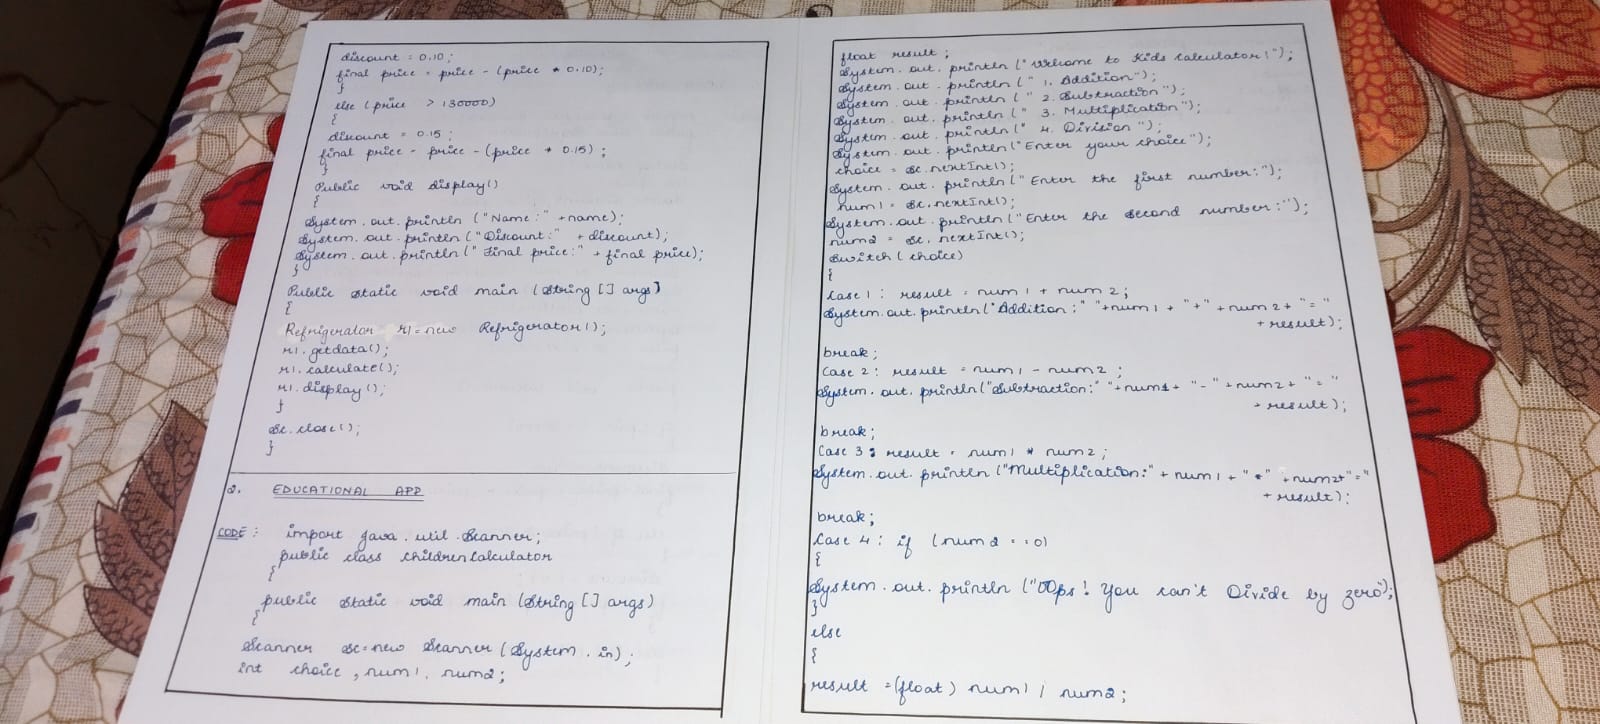 discount = 0.10;
final price = price - (price * 0.10);
}
else (price > 130000)
{
discount = 0.15;
final price - price - (price * 0.15);
}
Public void display()
{
System.out.println ("Name:" +name);
System.out.println ("Discount:" + discount);
System.out.println (" Final price:" + final price);
}
Public static void main (String [] args)
{
Refrigerator r1=new Refrigerator();
r1.getdata();
r1.calculate();
r1.display();
}
Sc.close();
}
2. EDUCATIONAL APP
CODE: import java.util.Scanner;
public class childrenCalculator
{
public static void main (String [] args)
{
Scanner Sc=new Scanner (System.in);
int choice, num1, num2;
float result;
System.out.println ("Welcome to Kids Calculator!");
System.out.println (" 1. Addition");
System.out.println (" 2. Subtraction");
System.out.println (" 3. Multiplication");
System.out.println (" 4. Division");
System.out.println ("Enter your choice");
choice = Sc.nextInt();
System.out.println ("Enter the first number:");
num1 = Sc.nextInt();
System.out.println ("Enter the Second number:");
num2 = Sc.nextInt();
Switch (choice)
{
Case 1: result = num1 + num2;
System.out.println ("Addition:" "+num1 + "+" + num2 + "="
+ result);
break;
Case 2: result = num1 - num2;
System.out.println ("Subtraction:" "+num1+ "-" + num2 + "="
+ result);
break;
Case 3: result = num1 * num2;
System.out.println ("Multiplication:" + num1 + "*" + num2+"="
+ result);
break;
Case 4: if (num2 == 0)
{
System.out.println ("OOps! You can't Divide by zero");
}
else
{
result =(float) num1 / num2;